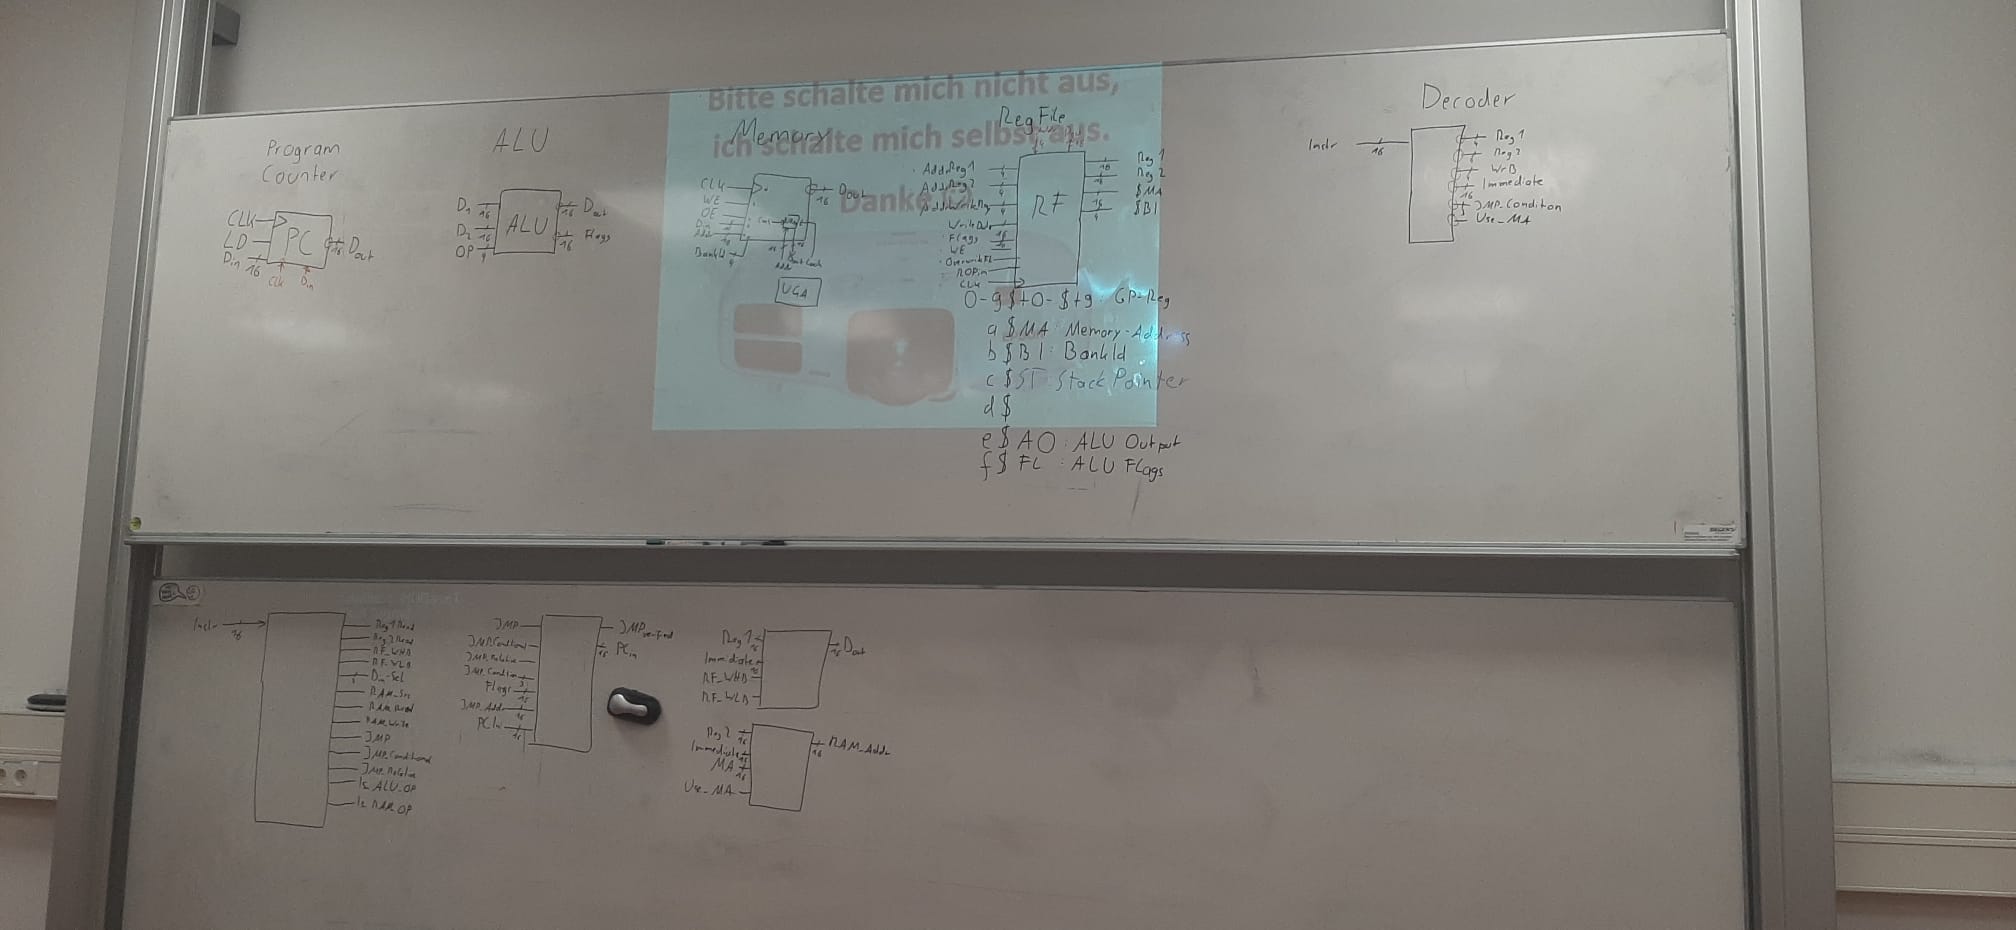 Bitte schalte mich nicht aus,
ich schalte mich selbst aus.
Danke
Program
Counter
CLK
LD
Din 16
PC
16 Dout
Clk
Din
ALU
D1 16
D2 16
OP 4
ALU
16 Dout
16 Flags
Memory
CLK
WE
OE
Din
BankId
4
16 Dout
VGA
RegFile
AddrReg1 4
AddrReg2 4
4
Flags 16
WE
CLK
RF
16 Reg 1
16 Reg 2
16 $MA
4 $BI
0-9 $t0-$t9: GP-Reg
a $MA: Memory-Address
b $BI: BankId
c $ST: Stack Pointer
d $
e $AO: ALU Output
f $FL: ALU Flags
Decoder
Instr 16
Reg 1
Reg 2
WrB
Immediate
JMP_Condition
Use_MA
Instr 16
Reg1Read
Reg2Read
RF_WHB
RF_WLB
Din-Sel
RAM_Src
RAM_Read
RAM_Write
JMP
JMP_Conditional
JMP_Relative
Is ALU_OP
Is RAM_OP
JMP
JMP_Conditional
JMP_Relative
JMP_Condition 3
Flags 16
JMP_Addr 16
PC 16
JMP
PCin 16
Reg1 16
Immediate 16
RF_WHB
RF_WLB
16 Dout
Reg2 16
Immediate 16
MA 16
Use_MA
16 RAM_Addr